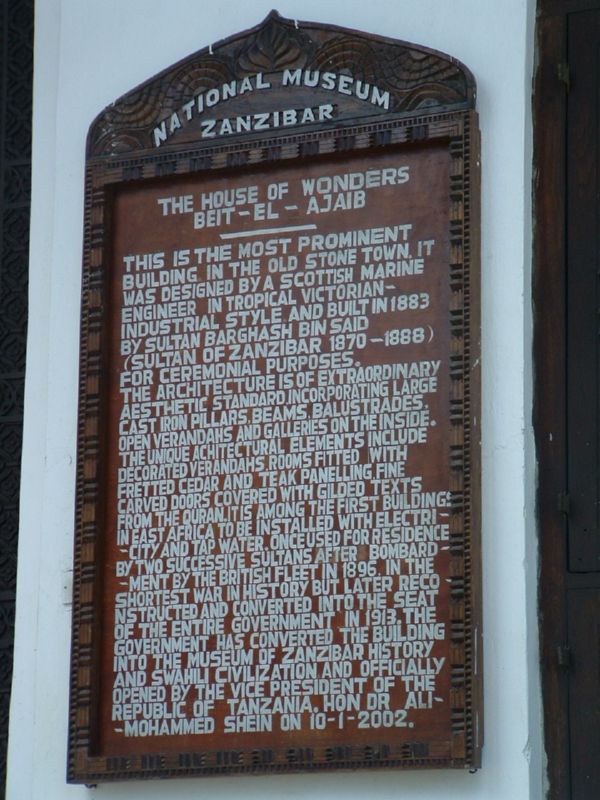 NATIONAL MUSEUM
ZANZIBAR
THE HOUSE OF WONDERS
BEIT-EL-AJAIB
THIS IS THE MOST PROMINENT
BUILDING IN THE OLD STONE TOWN. IT
WAS DESIGNED BY A SCOTTISH MARINE
ENGINEER IN TROPICAL VICTORIAN-
INDUSTRIAL STYLE AND BUILT IN 1883
BY SULTAN BARGHASH BIN SAID
(SULTAN OF ZANZIBAR 1870-1888)
FOR CEREMONIAL PURPOSES.
THE ARCHITECTURE IS OF EXTRAORDINARY
AESTHETIC STANDARD.INCORPORATING LARGE
CAST IRON PILLARS, BEAMS, BALUSTRADES,
OPEN VERANDAHS AND GALLERIES ON THE INSIDE.
THE UNIQUE ACHITECTURAL ELEMENTS INCLUDE
DECORATED VERANDAHS, ROOMS FITTED WITH
FRETTED CEDAR AND TEAK PANELLING FINE
CARVED DOORS COVERED WITH GILDED TEXTS
FROM THE QURAN. IT IS AMONG THE FIRST BUILDINGS
IN EAST AFRICA TO BE INSTALLED WITH ELECTRI-
-CITY AND TAP WATER. ONCE USED FOR RESIDENCE
BY TWO SUCCESSIVE SULTANS AFTER BOMBARD-
-MENT BY THE BRITISH FLEET IN 1896, IN THE
SHORTEST WAR IN HISTORY BUT LATER RECO-
NSTRUCTED AND CONVERTED INTO THE SEAT
OF THE ENTIRE GOVERNMENT IN 1913. THE
GOVERNMENT HAS CONVERTED THE BUILDING
INTO THE MUSEUM OF ZANZIBAR HISTORY
AND SWAHILI CIVILIZATION, AND OFFICIALLY
OPENED BY THE VICE PRESIDENT OF THE
REPUBLIC OF TANZANIA. HON DR ALI-
-MOHAMMED SHEIN ON 10-1-2002.